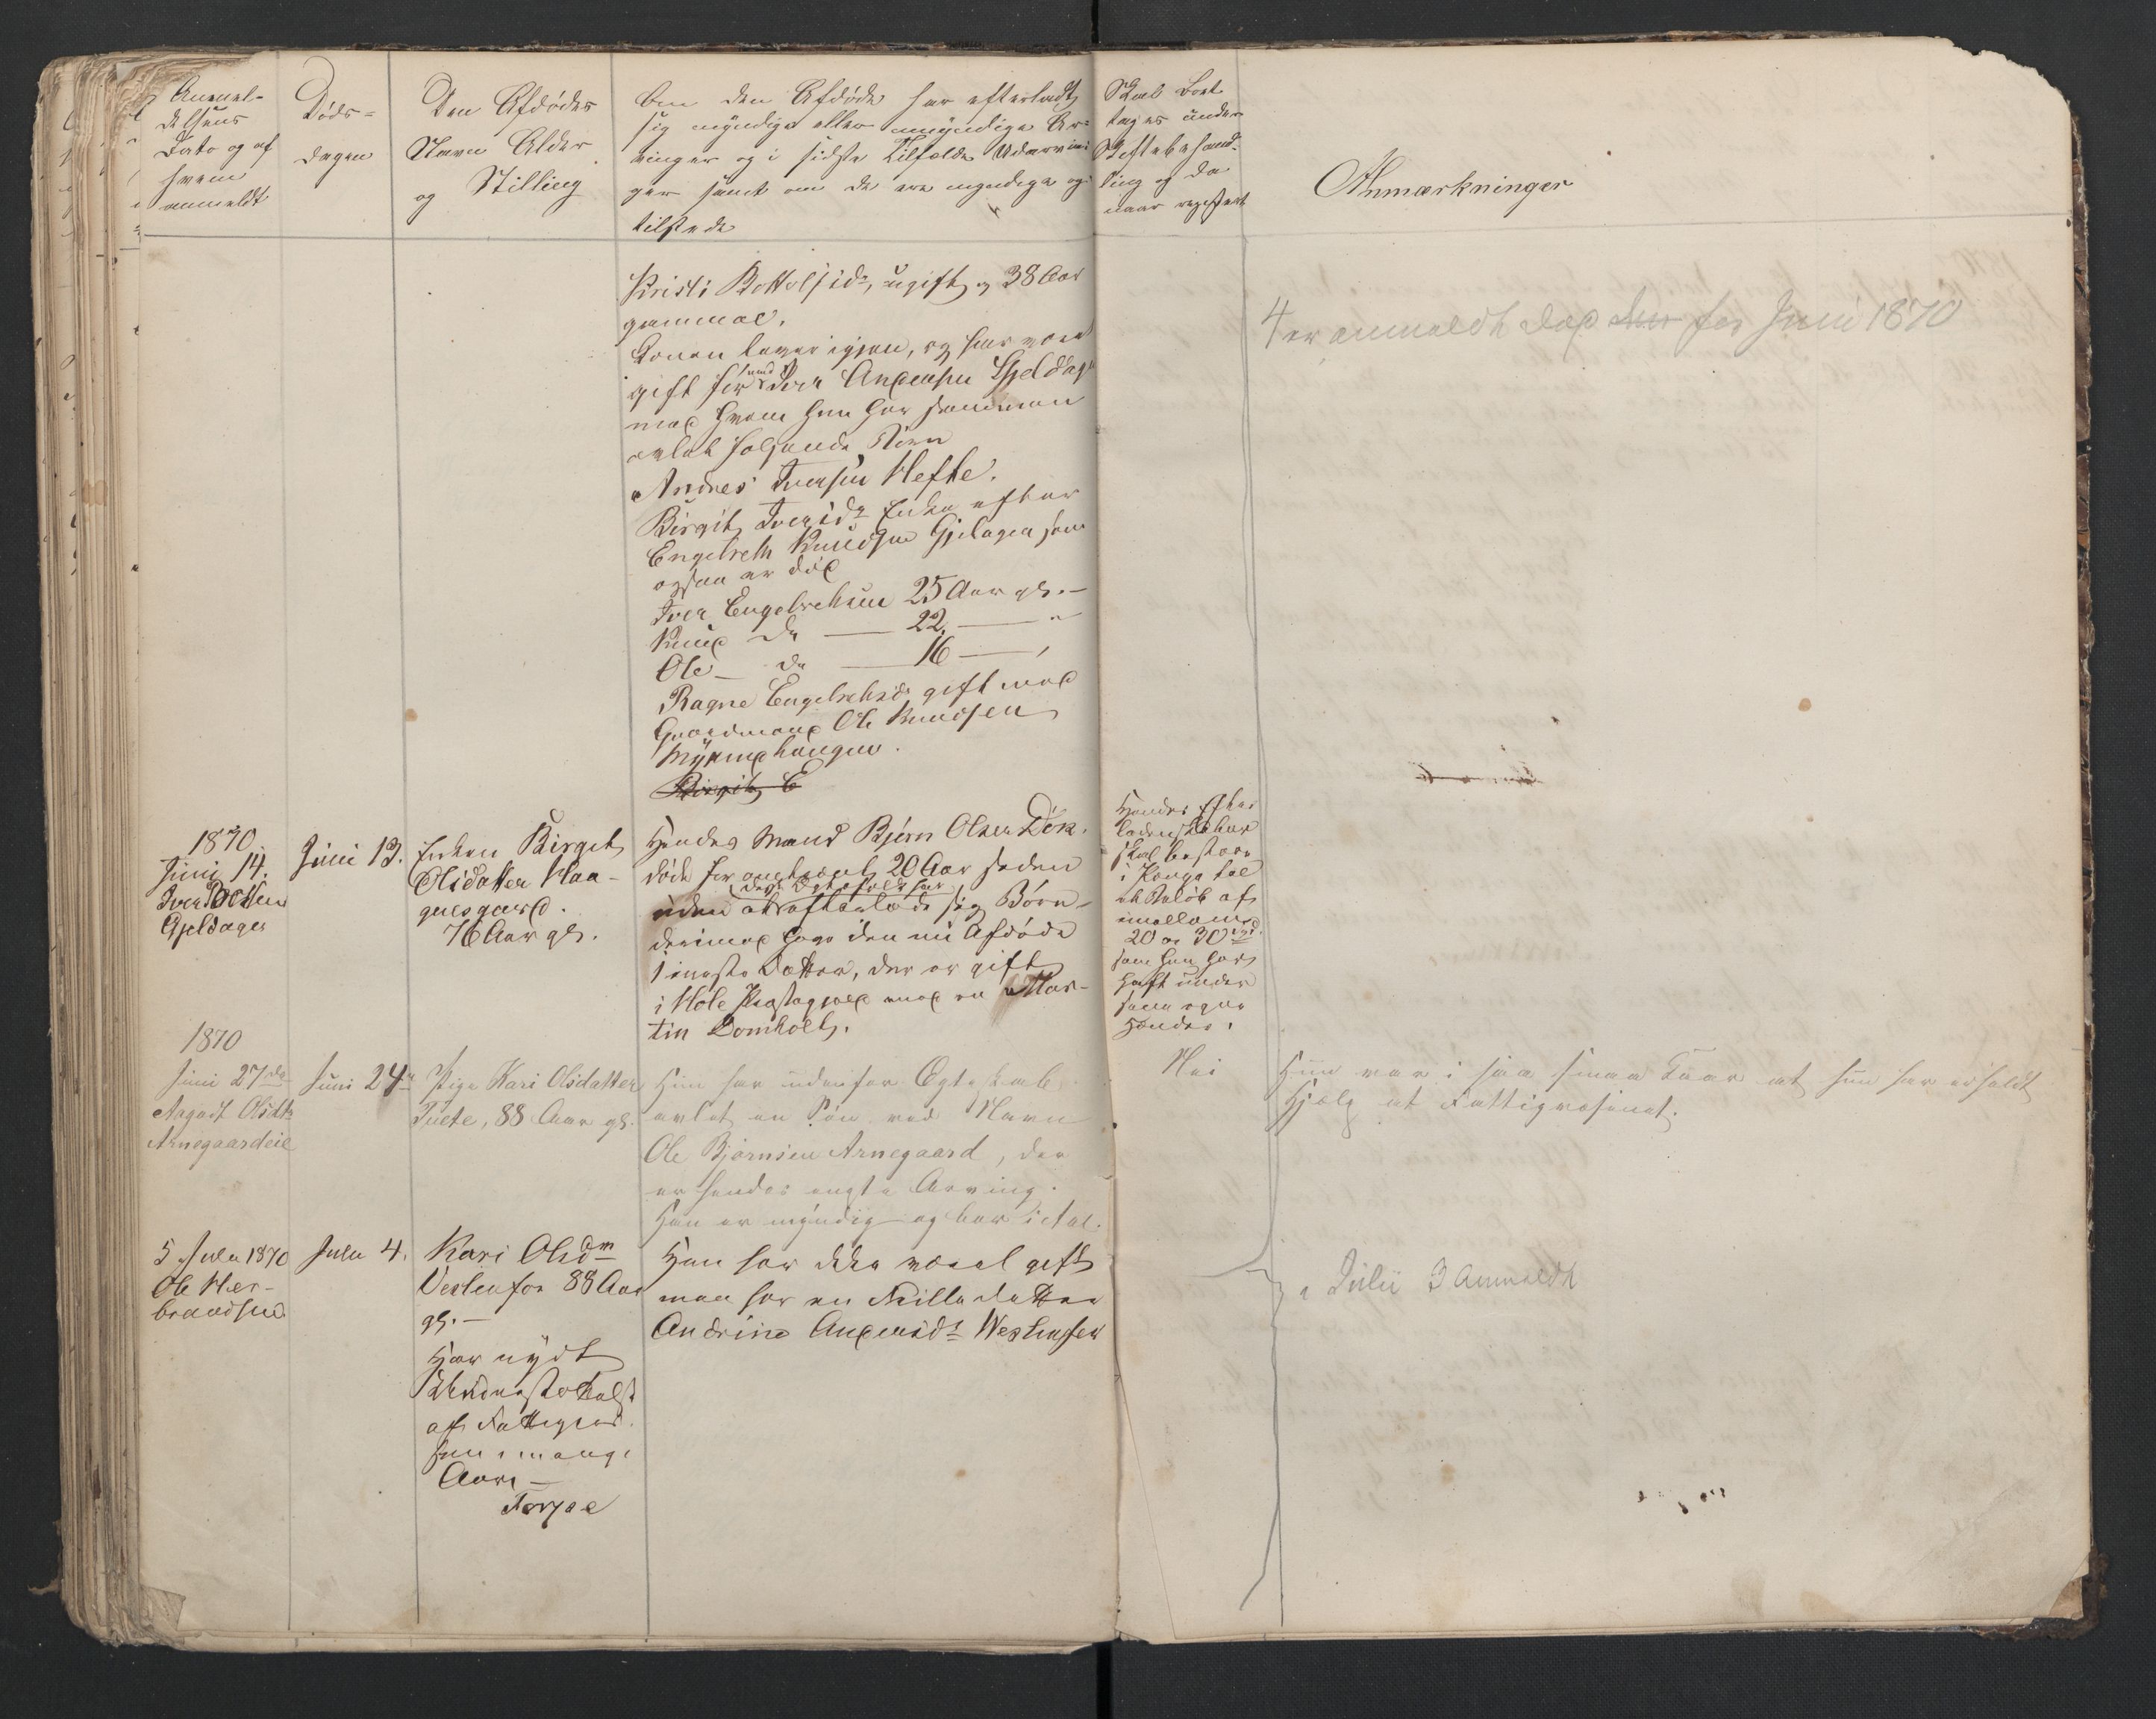 Anmel-
delsens
Dato og af
hvem
anmeldt
Døds-
dagen
Den Afdødes
Navn Alder
og Stilling
Om den Afdøde har efterladt
sig myndige eller umyndige Ar-
vinger og i sidste Tilfælde Udarvin-
ger samt om de ere myndige og
tilstede
Skal Boet
tages under
Skiftebehand-
ling og da
naar registert
Anmærkninger
Kristi Bottolfsdr, ugift og 38 Aar
gammel.
Konen lever igjen, og har været
gift før med Iver Andersen Gjeldager
med hvem hun har sammen
avlet følgende Børn
Andres Iversen Hefte.
Birgit Iversdr Enke efter
Engebreth Knudsen Gjeldager som
ogsaa er død
Iver Engebrethsen 25 Aar gl. —
Knud do — 22 — "
Ole — do — 16 — ,
Ragne Engebrethsdr gift med
Gaardmand Ole Knudsen
Myrmehaugen.
Birgit E
4 er anmeldt død den for Juni 1870
1870
Juni 14.
Iver Bottolfsen
Gjeldager
Juni 13.
Enken Birgit
Olsdatter Haa-
gensgaard.
76 Aar gl.
Hendes Mand Bjørn Olsen Døk.
døde for omtrent 20 Aar siden
uden at disse Ægtefolk har efterladt sig Børn -
derimod har den nu Afdøde
1 eneste Datter, der er gift
i Hole Præstegjeld med en Mar-
tin Domholt.
Hendes Efter
ladenskaber
skal bestaae
i Penge til
et Beløb af
imellem
20 og 30 Spd.
som hun har
havt under
sine egne
Hænder.
1870
Juni 27de
Margit Olsdtr
Arnegaardeie
Juni 24de
Pige Kari Olsdatter
Tuete, 88 Aar gl.
Hun har udenfor Egteskab
avlet en Søn ved Navn
Ole Bjørnsen Arnegaard, der
er hendes eneste Arving.
Han er myndig og boer i Aal.
Nei
Hun var i saa smaa Kaar at hun har erholdt
Hjælp af Fattigvæsenet.
5 Julu 1870
Ole Her-
brandsen
Julu 4.
Kari Olsdtr
Veslenfor 88 Aar
gl. —
Har nydt
Understøttelse
af Fattigvæ-
sen i mange
Aar —
Torpe
Hun har ikke været gift
men har en Stilledatter
Andrine Andersdr Veslenfor
i Julii 3 Anmeldt